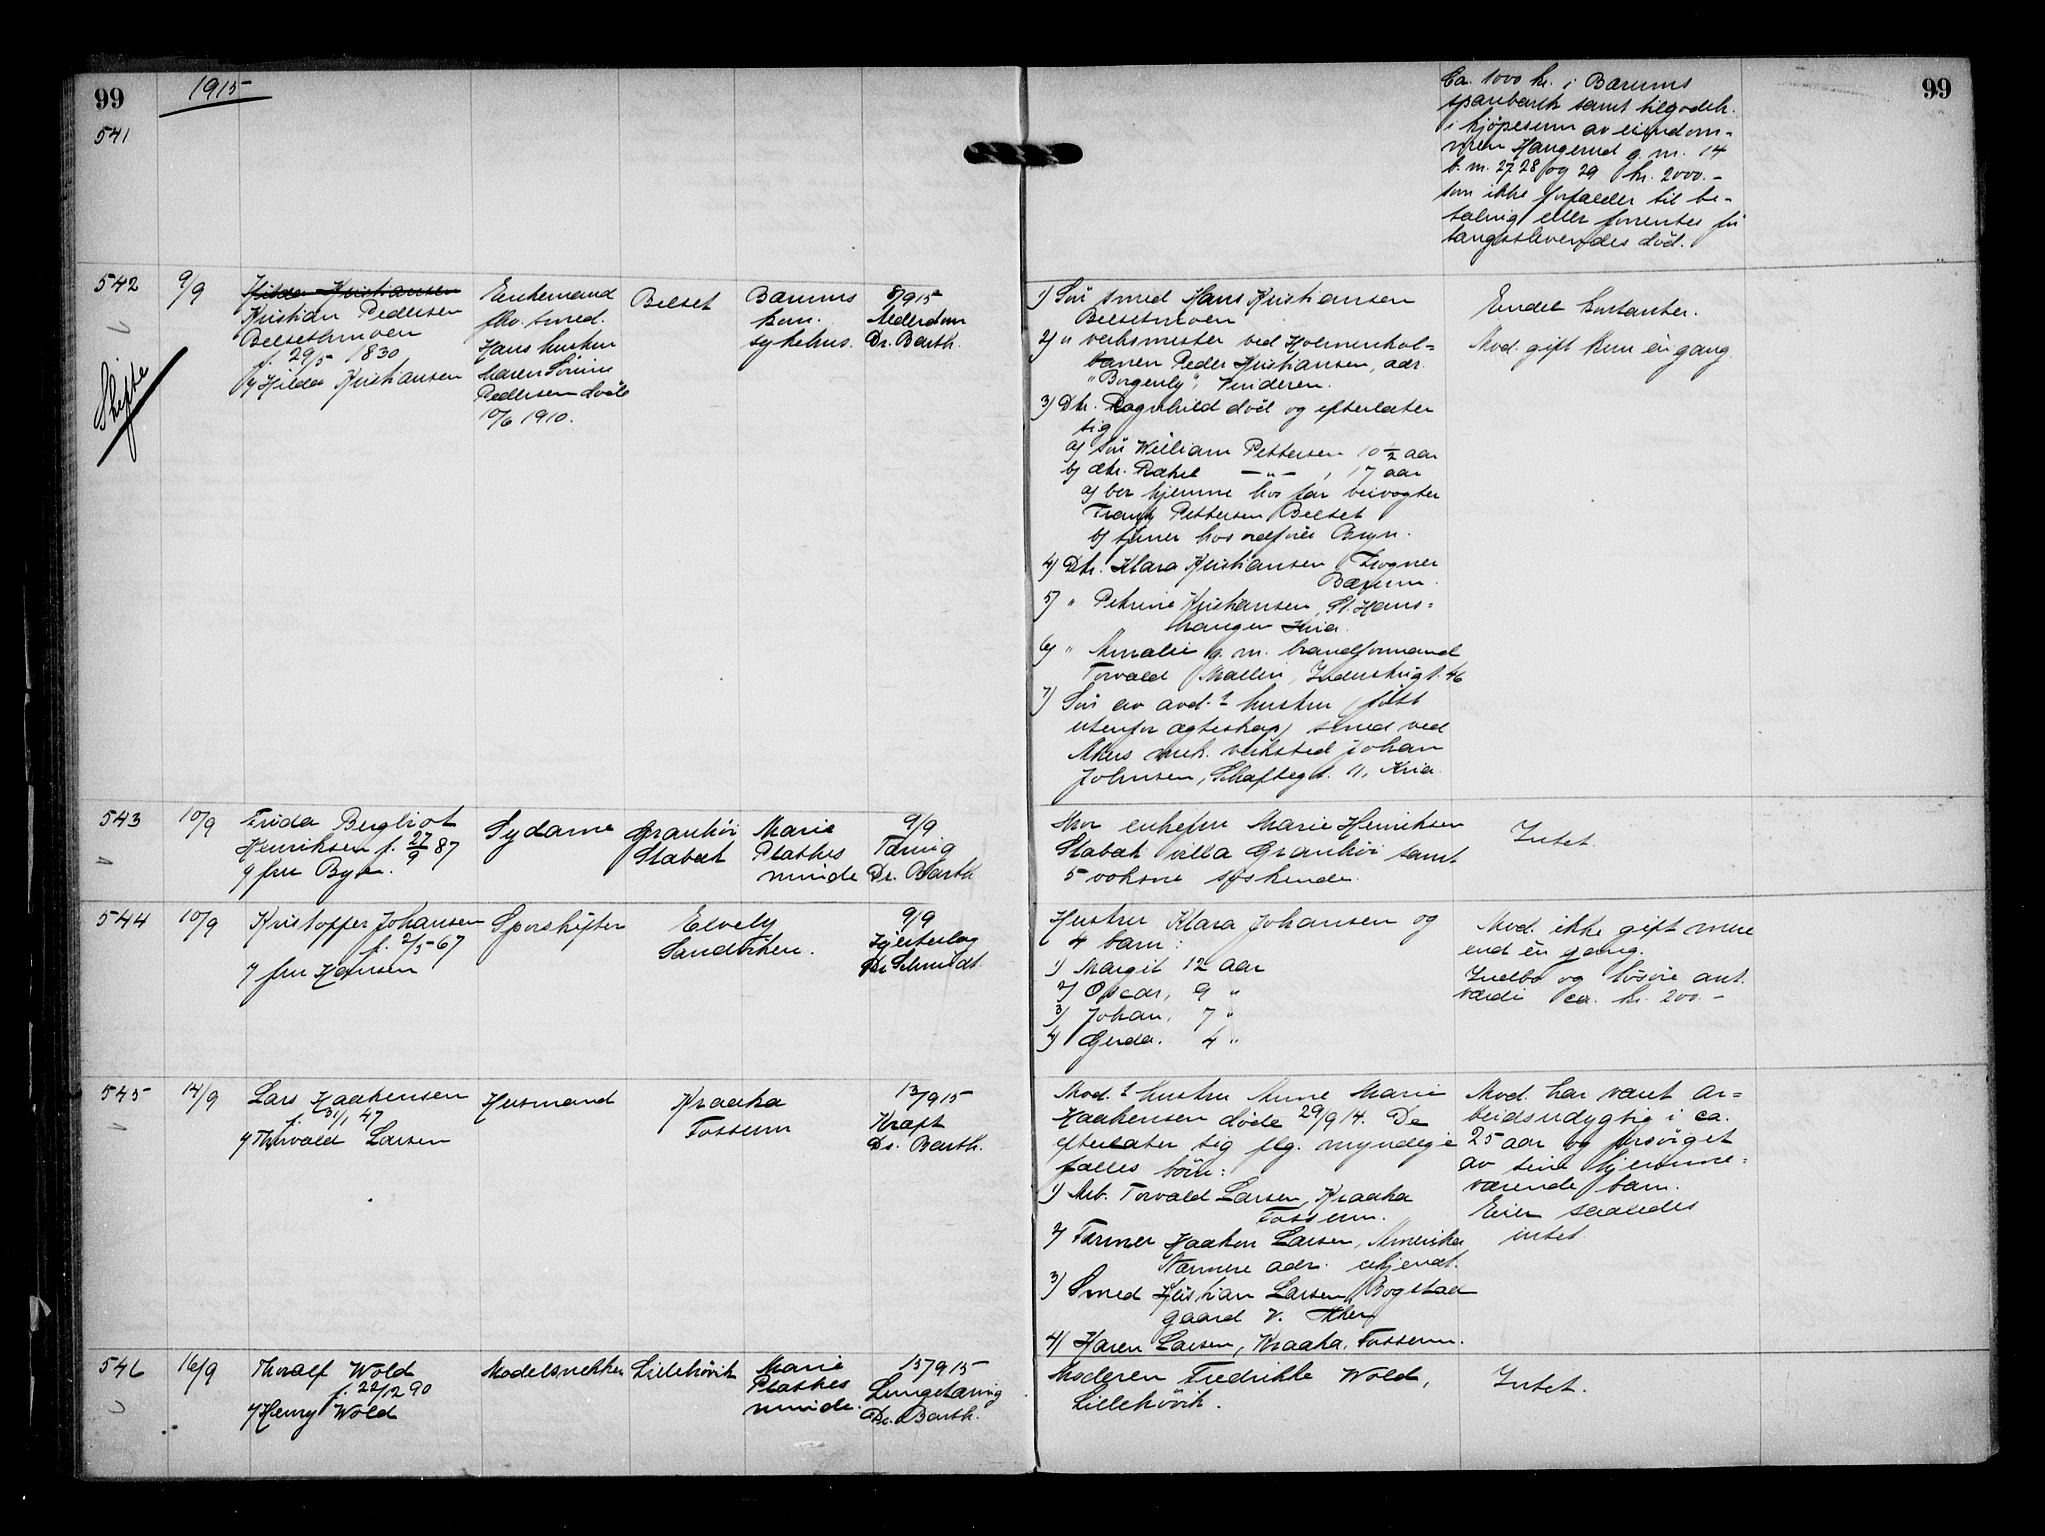 99
1915
99
541
Ca. 1000 kr. i Bærums
sparebank samt tilgodeh.
i kjøpesum av eiendom-
men Haugerud g. nr. 14
b. nr. 27 28 og 29 kr. 2000.-
som ikke forfalder til be-
taling eller forrentes før
længstlevendes død.
542
9/9
Hilda Kristiansen
Kristian Pedersen
Belsetmoen
f. 29/5 1830
v/Hilda Kristiansen
Skifte
Enkemand
fhv. smed.
Hans hustru
Maren Sørine
Pedersen døde
10/6 1910.
Belset
Bærums
kom.
sykehus.
8/9 15
Alderdom
Dr. Barth.
1) Søn smed Hans Kristiansen
Belsetmoen
2) " verksmester ved Holmenkol-
banen Peder Kristiansen, adr.
"Borgenly", Vinderen.
3) Dtr. Ragnhild død og efterlater
sig
a) søn William Pettersen 10 1/2 aar
b) dtr. Rakel —"— , 17 aar
a) bor hjemme hos far veivogter
Frantz Pettersen Belset
b) tjener hos ordfører Bryn.
4) Dtr. Klara Kristiansen, Frogner
Bærum.
5) " Petrine Kristiansen, St. Hans-
haugen Kria.
6) " Amalie g. m. brandformand
Torvald Mallin, Industrigt. 46
7) Søn av avd. s hustru (født
utenfor ægteskap) smed ved
Akers mek. verksted Johan
Johnsen, Schaftegt. 11, Kria.
Endel kontanter.
Avd. gift kun én gang.
543
10/9
Frida Bergliot
Henriksen f. 27/9 87
v/ fru Bye.
Sydame
Granhøi
Stabæk
Marie
Plathes
minde
9/9
Tæring
Dr. Barth
Mor enkefru Marie Henriksen
Stabæk villa Granhøi samt
5 voksne søskende.
Intet.
544
10/9
Kristoffer Johansen
f. 2/5-67
v/ fru Hansen
Sporskifter
Elvely
Sandviken.
9/9
Hjerteslag
Dr. Schmidt.
Hustru Klara Johansen og
4 barn:
1) Margit 12 aar
2) Oscar, 9 "
3) Johan, 7 "
4) Gerda. 4 "
Avd. ikke gift mere
end én gang.
Indbo og løsøre ant.
værdi ca. kr. 200.-
545
14/9
Lars Haakensen
f. 31/1 47
v/Thorvald Larsen
Husmand
Kraaka
Fossum
13/9 15
Kræft
Dr. Barth.
Avd. s hustru Anne Marie
Haakensen døde 29/9 14. De
efterlater sig flg. myndige
fælles børn:
1) Arb. Torvald Larsen, Kraaka
Fossum.
2) Farmer Haaken Larsen, Amerika
Nærmere adr. ukjendt.
3) Smed Kristian Larsen, Bogstad
gaard v. Aker
4) Karen Larsen, Kraaka, Fossum.
Avd. har været ar-
beidsudygtig i ca.
25 aar og forsørget
av sine hjemme-
værende barn.
Eier saaledes
intet.
546
16/9
Thoralf Wold
f. 22/12 90
v/Henry Wold
Modelsnekker
Lillehøvik
Marie
Plathes
minde.
15/9 15
Lungetæring
Dr. Barth.
Moderen Fredrikke Wold,
Lillehøvik.
Intet.